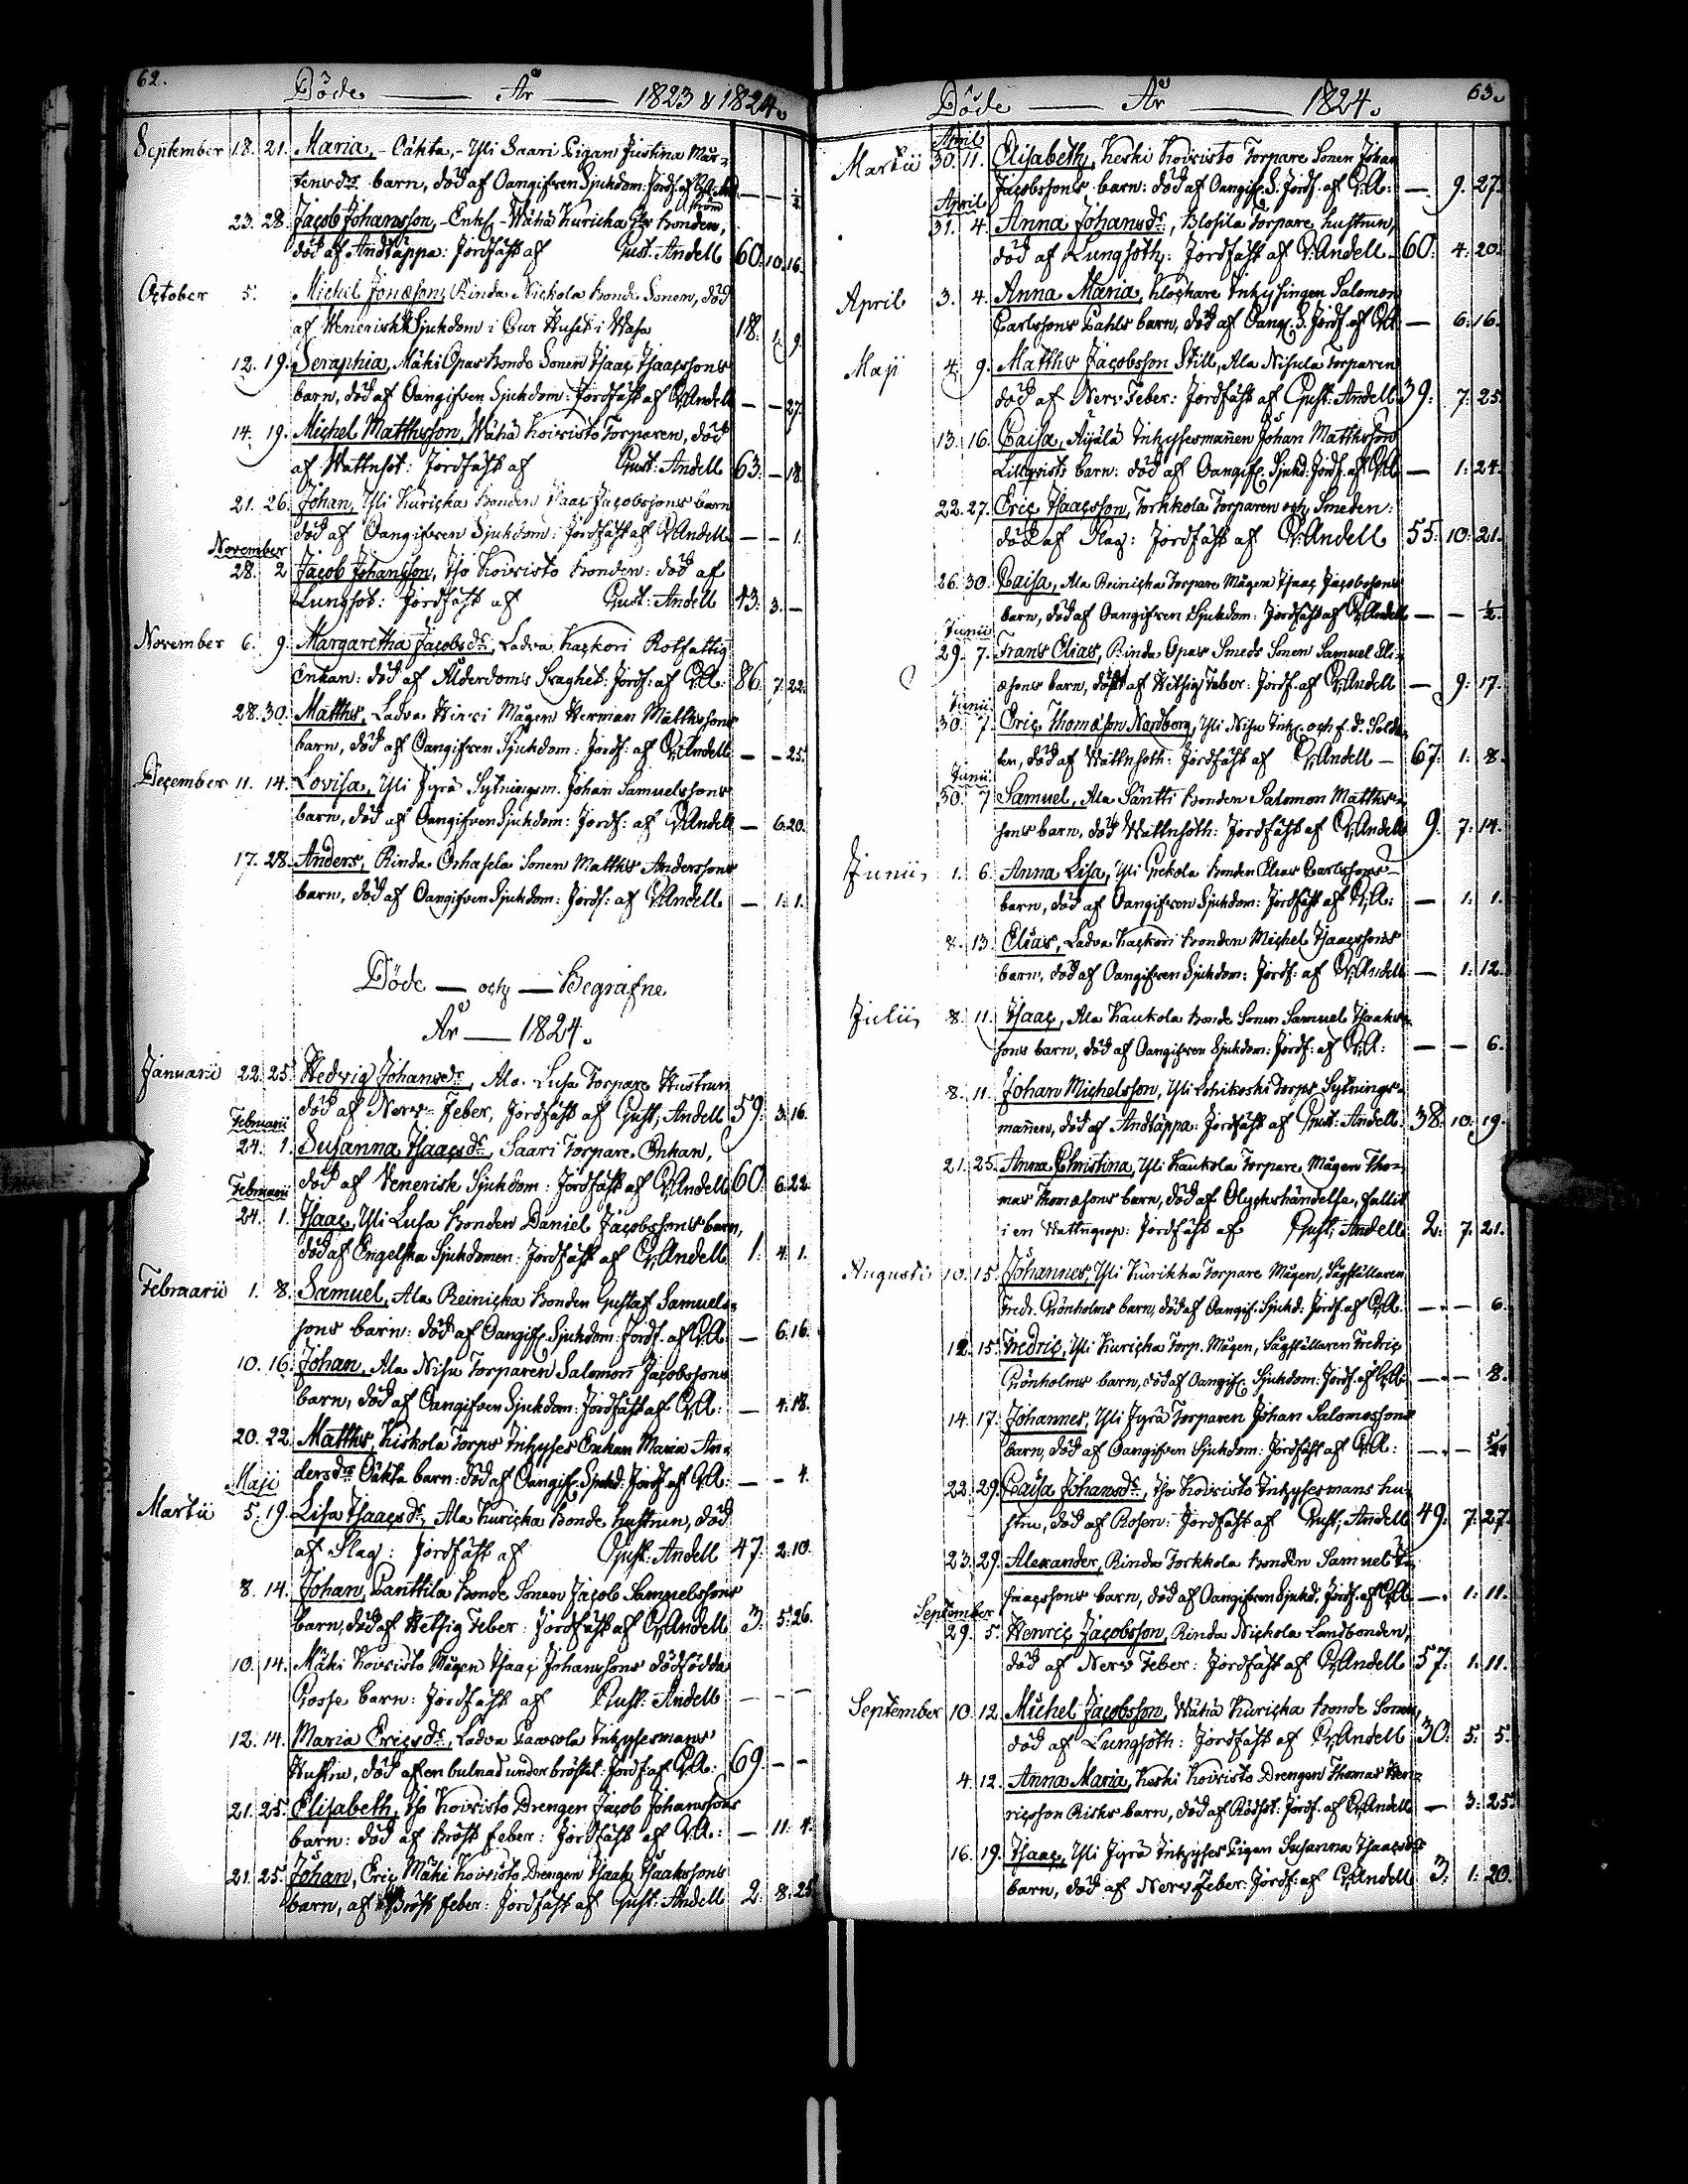 62.
Döde — År — 1823 & 1824.
September 18. 21. Maria, - Oäkta, - Yli Saari Pigan Justina Mår-
tens dr barn, död af Oangifven Sjukdom: Jordf. af — —
23. 28. Jacob Johansson, - Enkl. - Wähä Kuricka Bonden,
död af Andtäppa: Jordfäst af Gust: Andell 60. 10. 16.
October 5. Michel Jonæson, Rinda Nickola Bonde Sonen, död
af Venerisk Sjukdom i Cur Huset i Wasa 18. 1. 9.
12. 19. Seraphia, Mäki Opas Bonde Sonen Isaac Isaacssons
barn, död af Oangifven Sjukdom: Jordfäst af G: Andell — — 27.
14. 19. Michel Matthsson, Wähä Koivisto Torparen, död
af Wattusot: Jordfäst af Gust: Andell 63. — 18.
21. 26. Johan, Yli Kuricka Bonden Isaac Jacobssons barn
död af Oangifven Sjukdom: Jordfäst af G: Andell — — 1.
November
28. 2 Jacob Johansson, Iso Koivisto Bonden: död af
Lungsot: Jordfäst af Gust: Andell 43. 3. —
November 6. 9. Margaretha Jacobs dr, Ladva Kackori Rotfattig
Enkan: död af Ålderdoms Svaghet: Jordf: af G: A: 86. 7. 22.
28. 30. Matths, Ladva Hirvi Mågen Herman Matthssons
barn, död af Oangifven Sjukdom: Jordf: af G: Andell — — 25.
December 11. 14. Lovisa, Yli Jyrä Sytningsm. Johan Samuelssons
barn, död af Oangifven Sjukdom: Jordf: af G: Andell — 6. 20.
17. 28. Anders, Rinda Orhasela Sonen Matths Anderssons
barn, död af Oangifven Sjukdom: Jordf: af G: Andell — 1. 1.
Döde — och — Begrafne
År — 1824.
Januarii 22. 25. Hedvig Johans dr, Ala Lusa Torpare Hustrun
död af Nerv-Feber, Jordfäst af Gust, Andell 59. 3. 16.
Februarii
24. 1. Susanna Isaacs dr, Saari Torpare Enkan,
död af Venerisk Sjukdom: Jordfäst af G: Andell 60. 6. 22.
Februarii
24. 1. Isaac, Yli Lusa Bonden Daniel Jacobssons barn,
död af Engelska Sjukdomen: Jordfäst af G: Andell 1. 4. 1.
Februarii 1. 8. Samuel, Ala Reinicka Bonden Gustaf Samuels-
sons barn: död af Oangif. Sjukdom: Jordf. af G: A. — 6. 16.
10. 16. Johan, Ala Nisu Torparen Salomon Jacobssons
barn, död af Oangifven Sjukdom: Jordfäst af G: A: — 4. 18.
20. 22. Matths, Kiskola Torps Inhyses Enkan Maria An-
ders dr Oäkta barn: död af Oangif. Sjukd: Jordf. af G: A: — — 4.
Maji
Martii 5. 19. Lisa Isaacs dr, Ala Kuricka Bonde hustrun, död
af Slag: Jordfäst af Gust: Andell 47. 2. 10.
8. 14. Johan, Panttila Bonde Sonen Jacob Samuelssons
barn, död af Hetsig Feber: Jordfäst af G: Andell 3. 5. 26.
10. 14. Mäki Koivisto Mågen Isaac Johanssons dödfödda
Gosse barn: Jordfäst af Gust: Andell — — —
12. 14. Maria Erics dr, Ladva Paavola Inhysesmans
Hustru, död af en bulnad under bröstet: Jordf. af G: A: 69. — —
21. 25. Elisabeth, Iso Koivisto Drengen Jacob Johanssons
barn: död af Bröst feber: Jordfäst af G: A: — 11. 4.
21. 25. Johan, Eric Mäki Koivisto Drengen Isaak Isaakssons
barn, af Bröst feber: Jordfäst af Gust: Andell 2. 8. 25.
63.
Döde — År — 1824.
April
Martii 30. 11. Elisabeth, Keski Koivisto Torpare Sonen Johan
Jacobssons barn: död af Oangif. S. Jordf. af G: A: — 9. 27.
April
31. 4. Anna Johans dr, Blosila Torpare hustrun,
död af Lungsoth: Jordfäst af G: Andell 60. 4. 20.
April 3. 4. Anna Maria, Klockare Inhysingen Salomon
Carlssons Pahls barn, död af Oang. S. Jordf. af G: A — 6. 16.
Maji 4. 9. Matths Jacobsson Still, Ala Nisula Torparen
död af Nerv Feber: Jordfäst af Gust: Andell 39. 7. 25.
13. 16. Caisa, Äijälä Inhysesmannen Johan Matthsson
Lillqvists barn: död af Oangif. Sjukd: Jordf. af G: A — 1. 24.
22. 27. Eric Isaacsson, Torkkola Torparen och Smeden:
död af Slag: Jordfäst af G: Andell 55. 10. 21.
26. 30. Caisa, Ala Reinicka Torpare Mågen Isaac Jacobssons
barn, död af Oangifven Sjukdom: Jordfäst af G: Andell — — 1/2.
Junii
29. 7. Frans Elias, Rinda Opas Smeds Sonen Samuel Eli-
æsons barn, död af Hetsig Feber: Jordf. af G: Andell — 9. 17.
Junii
30. 7. Eric Thomæson Nordberg, Yli Nisu Inh. och f. d. Solda-
ten, död af Wattusoth: Jordfäst af G: Andell — 67. 1. 8.
Junii
30. 7 Samuel, Ala Säntti Bonden Salomon Matths-
sons barn, död Wattusoth: Jordfäst af G: Andell 9. 7. 14.
Junii 1. 6. Anna Lisa, Yli Pekola Bonden Elias Carlssons
barn, död af Oangifven Sjukdom: Jordfäst af G: A: — 1. 1.
8. 13. Elias, Ladva Kackori Bonden Michel Isaacssons
barn, död af Oangifven Sjukdom: Jordf: af G: Andell — 1. 12.
Julii 8. 11. Isaac, Ala Kaukola Bonde Sonen Samuel Isaaks-
sons barn, död af Oangifven Sjukdom: Jordf: af G: A: — — 6.
8. 11. Johan Michelsson, Yli Lohikoski Torps Sytnings-
mannen, död af Andtäppa: Jordfäst af Gust: Andell 38. 10. 19.
21. 25. Anna Christina, Yli Kaukola Torpare Mågen Tho-
mas Thomæsons barn, död af Olyckshändelse, fallit
i en Wattugrop: Jordfäst af Gust; Andell 2. 7. 21.
Augusti 10. 15. Johannes, Yli Kurikka Torpare Mågen, Sågställaren
Fredr. Grönholms barn, död af Oangif. Sjukd: Jordf. af G: A. — — 6.
12. 15. Fredric, Yli Kuricka Torp. Mågen, Sågställaren Fredric
Grönholms barn, död af Oangif. Sjukdom: Jordf. af G: A. — — 8.
14. 17. Johannes, Yli Jyrä Torparen Johan Salomossons
barn, död af Oangifven Sjukdom: Jordfäst af G: A: — — 5/24
22. 29. Caisa Johans dr, Iso Koivisto Inhysesmans hu-
stru, död af Rosen: Jordfäst af Gust; Andell 49. 7. 27.
23. 29. Alexander, Rinda Torkkola Bonden Samuel I-
saacssons barn, död af Oangifven Sjukd. Jordf. af G: A — 1. 11.
September
29. 5. Henric Jacobsson, Rinda Nickola Landbonden,
död af Nerv Feber: Jordfäst af G: Andell 57. 1. 11.
September 10. 12. Michel Jacobsson, Wähä Kuricka Bonde Sonen,
död af Lungsoth: Jordfäst af G: Andell 30. 5. 5.
4. 12. Anna Maria, Keski Koivisto Drengen Thomas Hen-
ricsson Risks barn, död af Rödsot: Jordf. af G: Andell — 3. 25.
16. 19. Isaac, Yli Jyrä Inhyses Pigan Susanna Isaacs dr
barn, död af Nerv Feber: Jordf: af G: Andell 3. 1. 20.